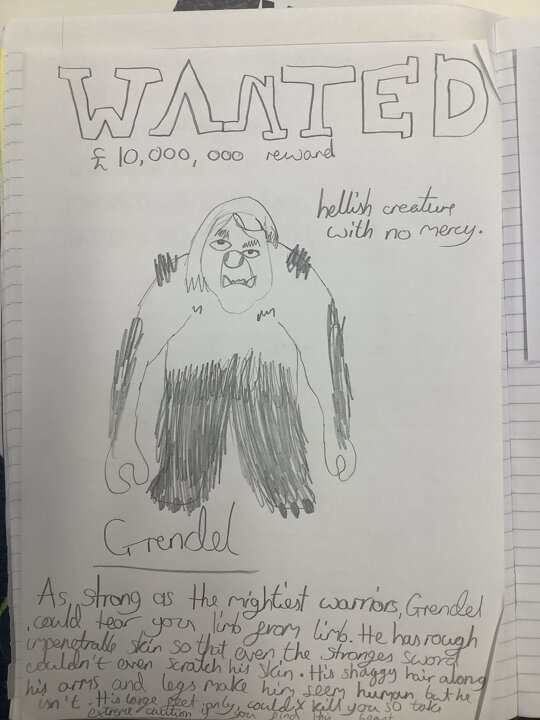 WANTED
£10,000,000 reward
hellish creature
with no mercy.
Grendel
As strong as the mightiest warriors, Grendel
could tear you limb from limb. He has rough
impenetrable skin so that even the stronges sword
couldn't even scratch his skin. His shaggy hair along
his arms and legs make him seem human, but he
isn't. His large feet only could kill you so take
extreme caution if you find this beast